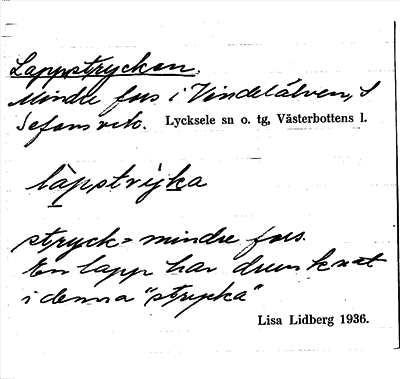 Lappstrycken.
Mindre fors i Vindelälven, S
Lycksele sn o. tg, Västerbottens l.
làpstrỳka
stryck = mindre fors.
En lapp har drunknat
i denna "strycka"
Lisa Lidberg 1936.